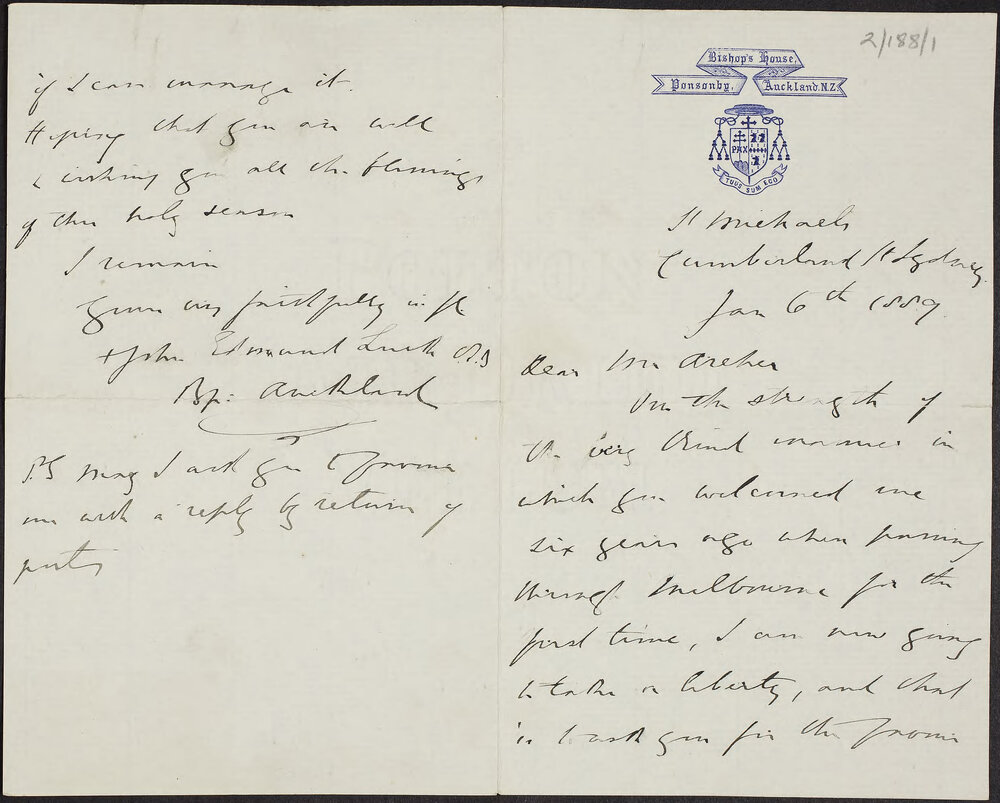 2/188/1
Bishop's House,
Ponsonby, Auckland. N.Z.
PAX
TUUS SUM EGO
St Michaels
Cumberland St Sydney
Jan 6th 1889
Dear Mr Archer
On the strength of
the very kind manner in
which you welcomed me
six years ago when passing
through Melbourne for the
first time, I am now going
to take a liberty, and that
is to ask you for the favour
if I can manage it.
Hoping that you are well
& wishing you all the blessings
of this holy season
I remain
Yours very faithfully in
+ John Edmund Luck O.S.B
Bp: Auckland
P.S May I ask you to favour
me with a reply by return of
post